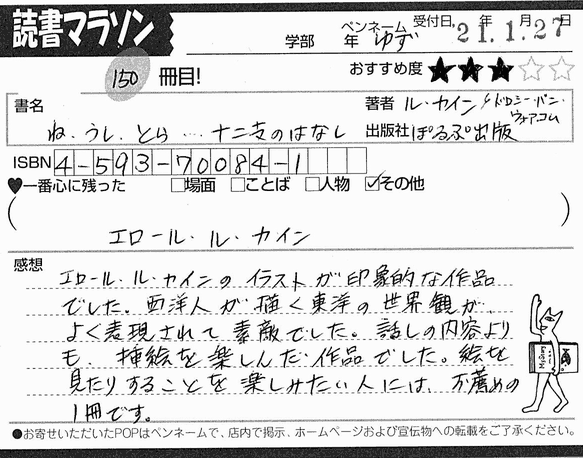 読書マラソン
学部 年 ペンネーム ゆず 受付日 21年1月27日
150 冊目!
おすすめ度 ★★★☆☆
書名
ね、うし、とら…十二支のはなし
著者 ル・カイン/ドロシー・バン・ウォアコム
出版社 ほるぷ出版
ISBN 4-593-70084-1
♥一番心に残った □場面 □ことば □人物 ☑その他
( エロール・ル・カイン )
感想
エロール・ル・カインのイラストが印象的な作品
でした。西洋人が描く東洋の世界観が、
よく表現されて素敵でした。話しの内容より
も、挿絵を楽しんだ作品でした。絵を
見たりすることを楽しみたい人には、お薦めの
1冊です。
●お寄せいただいたPOPはペンネームで、店内で掲示、ホームページおよび宣伝物への転載をご了承ください。